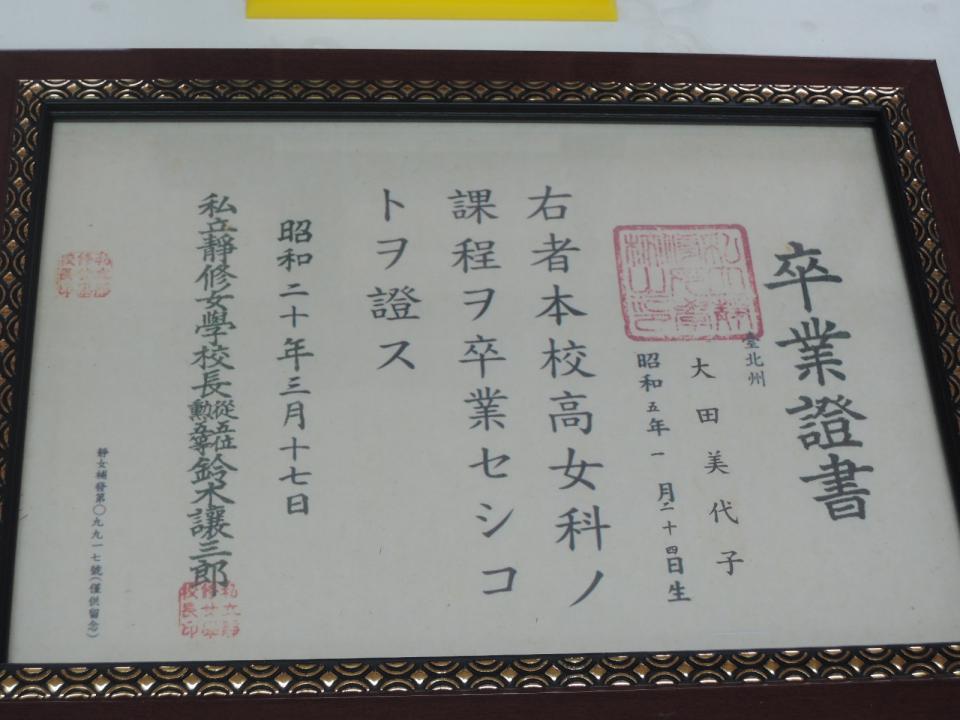 卒業證書
臺北州
大田美代子
昭和五年一月二十四日生
右者本校高女科ノ
課程ヲ卒業セシコ
トヲ證ス
昭和二十年三月十七日
私立靜修女學校長從五位勳五等鈴木讓三郎
靜女補發第〇九九一七號(僅供留念)
私立靜
修女學
校長印